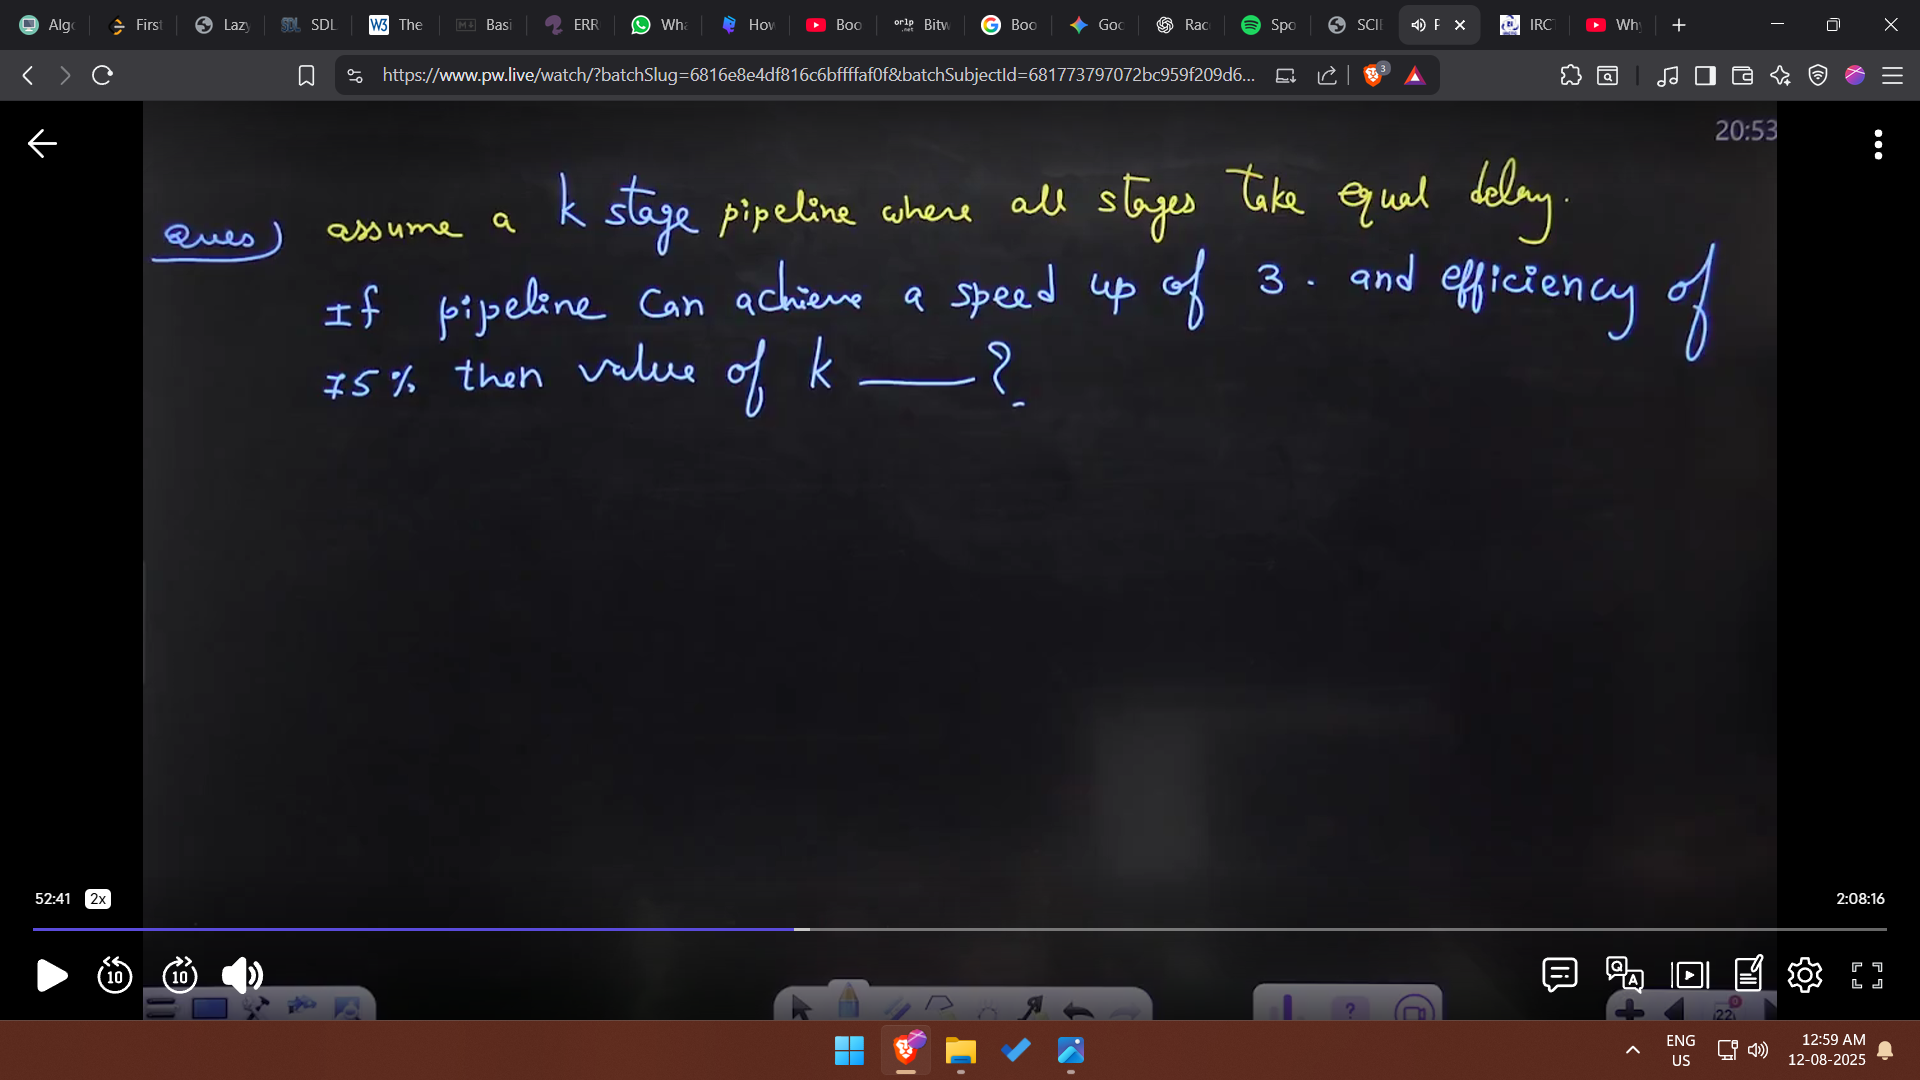 Algo
First
Lazy
SDL
The
Basi
ERR
Wha
How
Boo
Bitw
Boo
Goo
Rac
Spo
SCIE
IRCT
Why
https://www.pw.live/watch/?batchSlug=6816e8e4df816c6bffffaf0f&batchSubjectId=681773797072bc959f209d6...
3
20:53
Ques) assume a k stage pipeline where all stages take equal delay.
If pipeline can achieve a speed up of 3. and efficiency of
75% then value of k ____?
52:41 2x
2:08:16
10 10
22
ENG
US
12:59 AM
12-08-2025